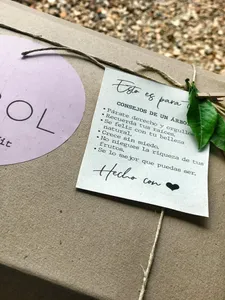 OL
it
Esto es para
CONSEJOS DE UN ÁRBOL
• Párate derecho y orgulloso
• Recuerda tus raíces.
• Se feliz con tu belleza
natural.
• Crece sin miedo.
• No niegues la riqueza de tus
frutos.
• Se lo mejor que puedas ser.
Hecho con